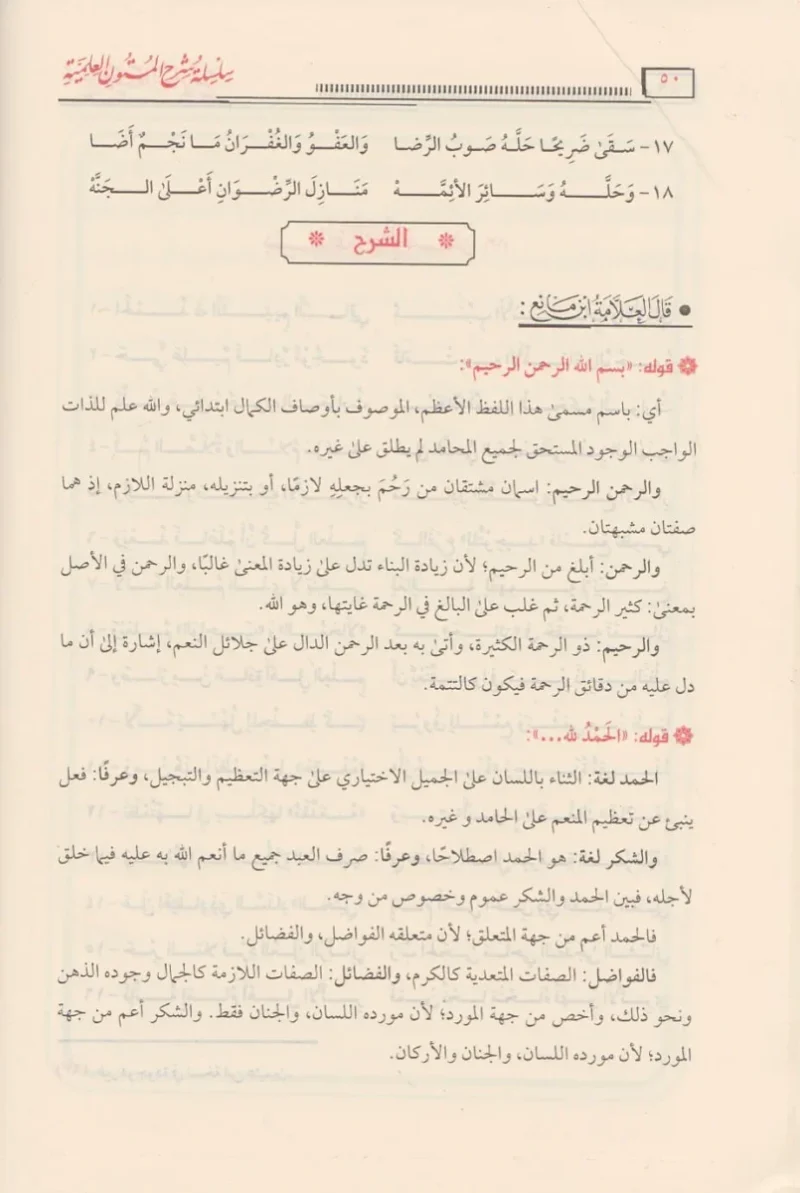 ٥٠
سلسلة شرح المتون العلمية
١٧- سَقَىٰ ضَرِيحًا حَلَّهُ صَوبُ الرِّضا وَالعَفْوُ وَالغُفْرَانُ مَا نَجْمٌ أَضَا
١٨- وَحَلَّهُ وَسَائِرَ الأئِمَّهْ مَنَازِلَ الرِّضْوَانِ أَعْلَىٰ الجَنَّهْ
* الشرح *
• قَالَ العَلَّامَةُ ابن مَانِع:
قوله: «بسم الله الرحمن الرحيم»:
أي: باسم مسمىٰ هذا اللفظ الأعظم، الموصوف بأوصاف الكمال ابتدائي، والله علم للذات
الواجب الوجود المستحق لجميع المحامد لم يطلق علىٰ غيره.
والرحمن الرحيم: اسمان مشتقان من رَحُمَ بجعلِهِ لازمًا، أو بتنزيله، منزلة اللازم، إذ هما
صفتان مشبهتان.
والرحمن: أبلغ من الرحيم؛ لأن زيادة البناء تدل علىٰ زيادة المعنىٰ غالبًا، والرحمن في الأصل
بمعنىٰ: كثير الرحمة، ثم غلب علىٰ البالغ في الرحمة غايتها، وهو الله.
والرحيم: ذو الرحمة الكثيرة، وأتىٰ به بعد الرحمن الدال علىٰ جلائل النعم، إشارة إلىٰ أن ما
دل عليه من دقائق الرحمة فيكون كالتتمة.
قوله: «الحَمْدُ لله...»:
الحمد لغة: الثناء باللسان علىٰ الجميل الاختياري علىٰ جهة التعظيم والتبجيل، وعرفًا: فعل
ينبئ عن تعظيم المنعم علىٰ الحامد و غيره.
والشكر لغة: هو الحمد اصطلاحًا، وعرفًا: صرف العبد جميع ما أنعم الله به عليه فيما خلق
لأجله، فبين الحمد والشكر عموم وخصوص من وجه.
فالحمد أعم من جهة المتعلق؛ لأن متعلقه الفواضل، والفضائل.
فالفواضل: الصفات المتعدية كالكرم، والفضائل: الصفات اللازمة كالجمال وجوده الذهن
ونحو ذلك، وأخص من جهة المورد؛ لأن مورده اللسان، والجنان فقط. والشكر أعم من جهة
المورد؛ لأن مورده اللسان، والجنان والأركان.